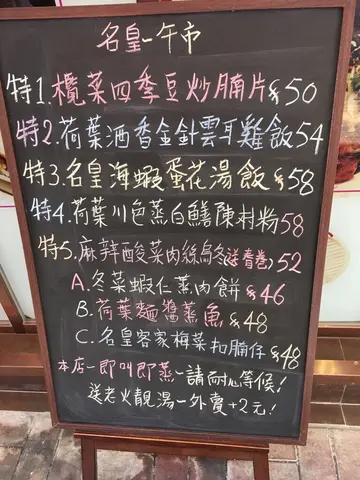 名皇一午市
特1.欖菜四季豆炒腩片$50
特2.荷葉酒香金針雲耳雞飯54
特3.名皇海蝦蛋花湯飯$58
特4.荷葉川色蒸白鱔陳村粉58
特5.麻辣酸菜肉絲烏冬(送春卷)52
A.冬菜蝦仁蒸肉餅$46
B.荷葉麵醬蒸魚$48
C.名皇客家梅菜扣腩仔$48
本店一即叫即蒸一請耐心等候!
送老火靚湯一外賣+2元!